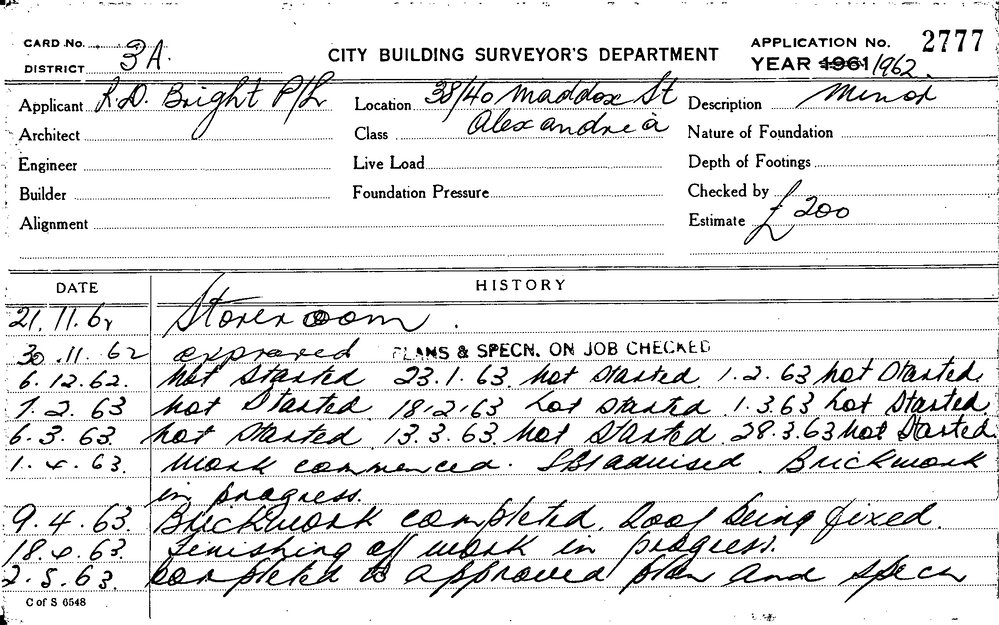 CARD No. 3A.
DISTRICT
CITY BUILDING SURVEYOR'S DEPARTMENT
APPLICATION No. 2777
YEAR 1961/1962.
Applicant R.D. Bright P/L
Location 38/40 Maddox St
Alexandria
Description Minor
Architect
Class
Nature of Foundation
Engineer
Live Load
Depth of Footings
Builder
Foundation Pressure
Checked by
Alignment
Estimate £200
DATE HISTORY
21.11.62 Storeroom.
30.11.62 approved PLANS & SPECN. ON JOB CHECKED
6.12.62. not started 23.1.63. not started 1.2.63 not started.
7.2.63 not started 18.2.63 not started 1.3.63 not started.
6.3.63. not started 13.3.63. not started. 28.3.63 not started.
1.4.63. Work commenced. advised. Brickwork
in progress.
9.4.63. Brickwork completed. Roof being fixed.
18.4.63. Finishing of work in progress.
2.5.63. completed to approved plan and specn
C of S 6548